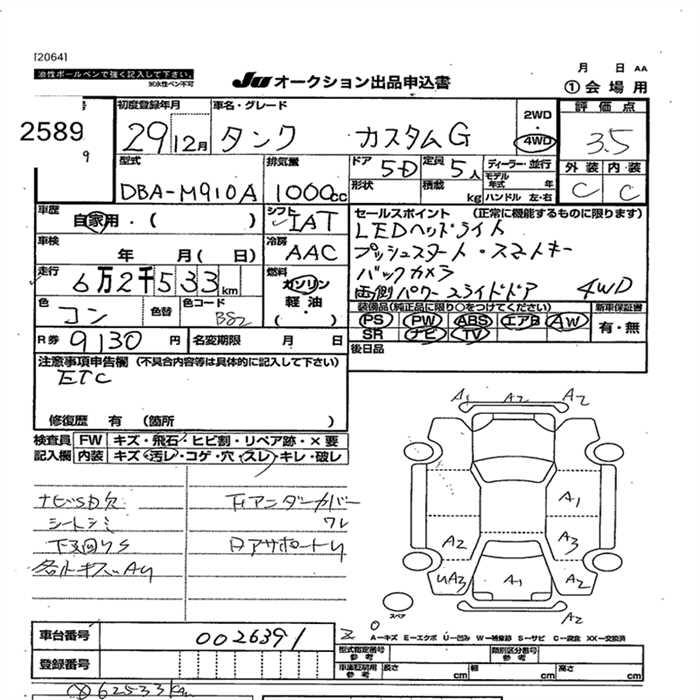 [2064]
月 日 AA
油性ボールペンで強く記入して下さい。
※水性ペン不可
JU オークション出品申込書
①会場用
2589
9
初度登録年月
29 12月
車名・グレード
タンク カスタムG
2WD
4WD
評価点
3.5
型式
DBA-M910A
排気量
1000cc
ドア
5D
定員
5人
形状
積載 kg
ディーラー・並行
モデル年式 年
ハンドル 左・右
外装 内装
C C
車歴
自家用・( )
シフト
IAT
セールスポイント (正常に機能するものに限ります)
LEDヘッドライト
プッシュスタート・スマートキー
バックカメラ
両側パワースライドドア 4WD
車検
年 月( 日)
冷房
AAC
走行
6万2千533km
燃料
ガソリン
軽油
( )
色
コン
色替
色コード
B82
装備品(純正品に限り○をつけてください)
PS PW ABS エアB AW
SR ナビ TV
新車保証書
有・無
R券 9130円
名変期限 月 日
後日品
注意事項申告欄 (不具合内容等は具体的に記入して下さい)
ETC
修復歴 有 (箇所 )
検査員記入欄
FW キズ・飛石・ヒビ割・リペア跡・×要
内装 キズ・汚レ・コゲ・穴・スレ・キレ・破レ
ナビSD欠
シートシミ
下回りS
下アンダーカバー
ワレ
A1 A2 A2
A1
A2 A3
UA3 A1 A2
A2
スペア
A—キズ E—エクボ U—凹み W—補修跡 S—サビ C—腐食 XX—交換済
車台番号
0026391
登録番号
型式指定番号
参考
類別区分番号
参考
長さ cm
幅 cm
高さ cm
62533km